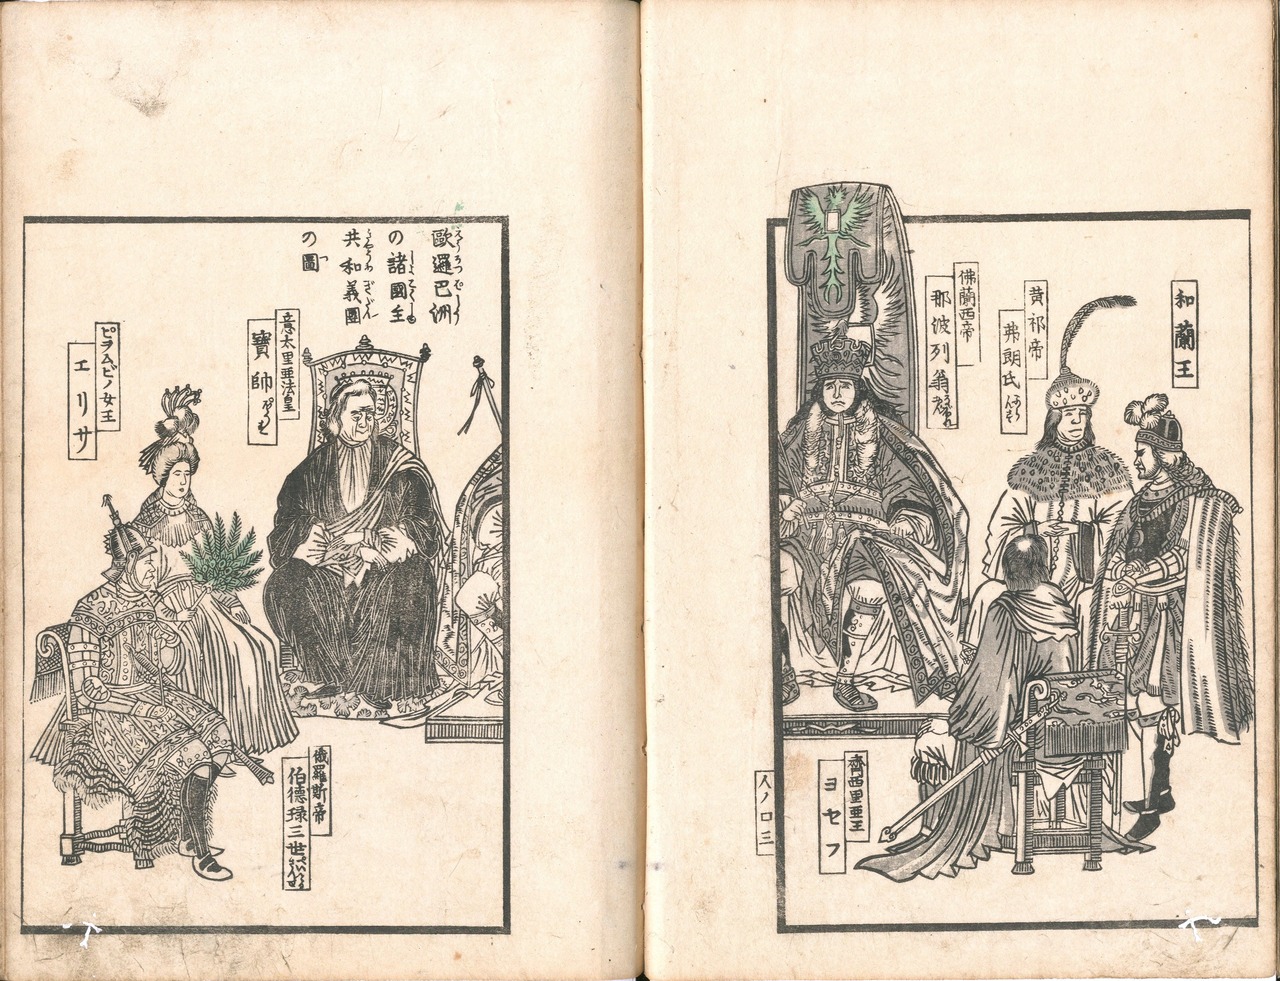 和蘭王
黄祁帝
弗朗氏
佛蘭西帝
那波列翁
齊西里亜王
ヨセフ
人ノ口三
歐邏巴洲
の諸國主
共和義團
の圖
意太里亜法皇
寶帥
ピヲムビノ女王
エリサ
俄羅斯帝
伯德琭三世